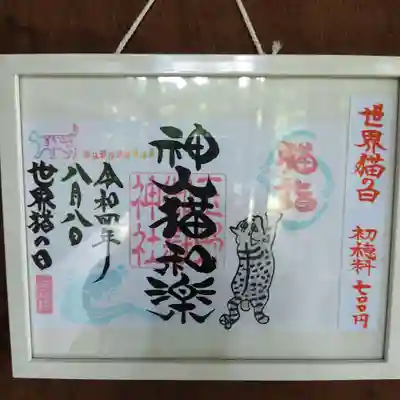 世界猫の日
初穂料 七百円
猫詣
神人猫和楽
神社
令和四年
八月八日
世界猫の日